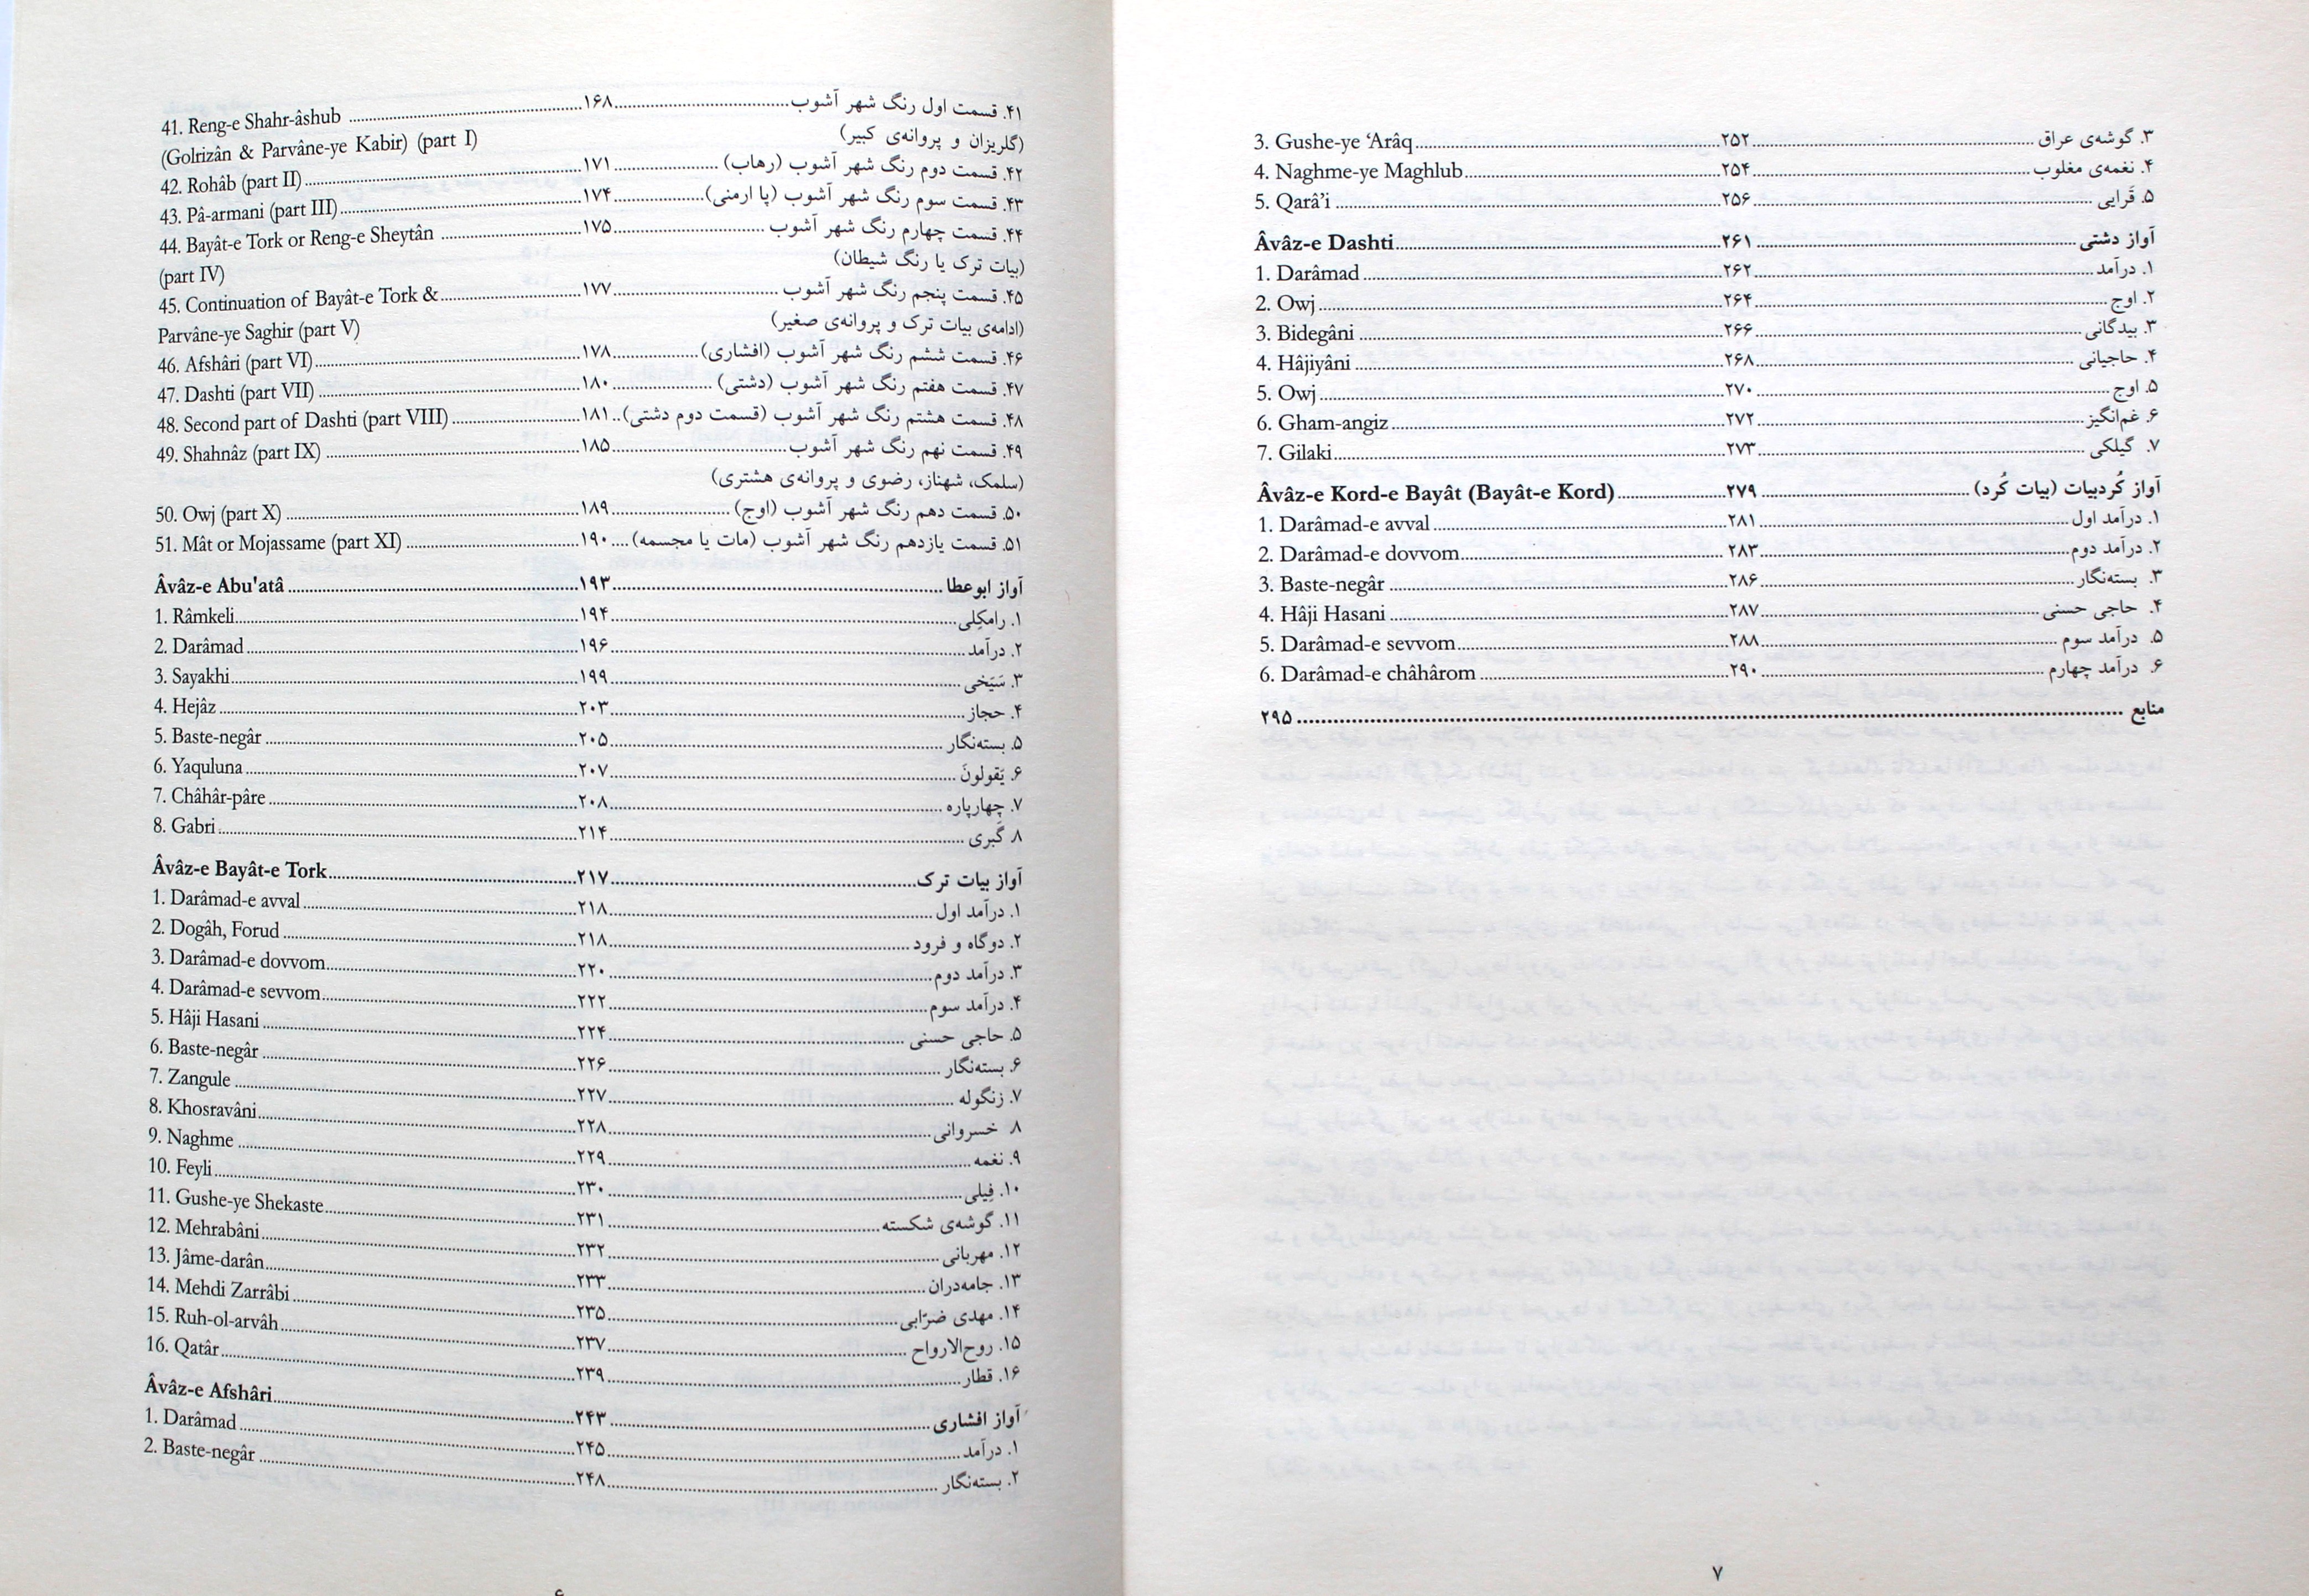 41. Reng-e Shahr-âshub ۱۶۸ ۴۱. قسمت اول رنگ شهر آشوب
(Golrizân & Parvâne-ye Kabir) (part I) (گلریزان و پروانه‌ی کبیر)
42. Rohâb (part II) ۱۷۱ ۴۲. قسمت دوم رنگ شهر آشوب (رهاب)
43. Pâ-armani (part III) ۱۷۴ ۴۳. قسمت سوم رنگ شهر آشوب (پا ارمنی)
44. Bayât-e Tork or Reng-e Sheytân ۱۷۵ ۴۴. قسمت چهارم رنگ شهر آشوب
(part IV) (بیات ترک یا رنگ شیطان)
45. Continuation of Bayât-e Tork & ۱۷۷ ۴۵. قسمت پنجم رنگ شهر آشوب
Parvâne-ye Saghir (part V) (ادامه‌ی بیات ترک و پروانه‌ی صغیر)
46. Afshâri (part VI) ۱۷۸ ۴۶. قسمت ششم رنگ شهر آشوب (افشاری)
47. Dashti (part VII) ۱۸۰ ۴۷. قسمت هفتم رنگ شهر آشوب (دشتی)
48. Second part of Dashti (part VIII) ۱۸۱ ۴۸. قسمت هشتم رنگ شهر آشوب (قسمت دوم دشتی)
49. Shahnâz (part IX) ۱۸۵ ۴۹. قسمت نهم رنگ شهر آشوب
(سلمک، شهناز، رضوی و پروانه‌ی هشتری)
50. Owj (part X) ۱۸۹ ۵۰. قسمت دهم رنگ شهر آشوب (اوج)
51. Mât or Mojassame (part XI) ۱۹۰ ۵۱. قسمت یازدهم رنگ شهر آشوب (مات یا مجسمه)
Âvâz-e Abu'atâ ۱۹۳ آواز ابوعطا
1. Râmkeli ۱۹۴ ۱. رامکِلی
2. Darâmad ۱۹۶ ۲. درآمد
3. Sayakhi ۱۹۹ ۳. سَیَخی
4. Hejâz ۲۰۳ ۴. حجاز
5. Baste-negâr ۲۰۵ ۵. بسته‌نگار
6. Yaquluna ۲۰۷ ۶. یَقولونَ
7. Châhâr-pâre ۲۰۸ ۷. چهارپاره
8. Gabri ۲۱۴ ۸. گَبری
Âvâz-e Bayât-e Tork ۲۱۷ آواز بیات ترک
1. Darâmad-e avval ۲۱۸ ۱. درآمد اول
2. Dogâh, Forud ۲۱۸ ۲. دوگاه و فرود
3. Darâmad-e dovvom ۲۲۰ ۳. درآمد دوم
4. Darâmad-e sevvom ۲۲۲ ۴. درآمد سوم
5. Hâji Hasani ۲۲۴ ۵. حاجی حسنی
6. Baste-negâr ۲۲۶ ۶. بسته‌نگار
7. Zangule ۲۲۷ ۷. زنگوله
8. Khosravâni ۲۲۸ ۸. خسروانی
9. Naghme ۲۲۹ ۹. نغمه
10. Feyli ۲۳۰ ۱۰. فِیلی
11. Gushe-ye Shekaste ۲۳۱ ۱۱. گوشه‌ی شکسته
12. Mehrabâni ۲۳۲ ۱۲. مهربانی
13. Jâme-darân ۲۳۳ ۱۳. جامه‌دران
14. Mehdi Zarrâbi ۲۳۵ ۱۴. مهدی ضرّابی
15. Ruh-ol-arvâh ۲۳۷ ۱۵. روح‌الارواح
16. Qatâr ۲۳۹ ۱۶. قطار
Âvâz-e Afshâri ۲۴۳ آواز افشاری
1. Darâmad ۲۴۵ ۱. درآمد
2. Baste-negâr ۲۴۸ ۲. بسته‌نگار
3. Gushe-ye ‘Arâq ۲۵۲ ۳. گوشه‌ی عراق
4. Naghme-ye Maghlub ۲۵۴ ۴. نغمه‌ی مغلوب
5. Qarâ’i ۲۵۶ ۵. قَرایی
Âvâz-e Dashti ۲۶۱ آواز دشتی
1. Darâmad ۲۶۲ ۱. درآمد
2. Owj ۲۶۴ ۲. اوج
3. Bidegâni ۲۶۶ ۳. بیدگانی
4. Hâjiyâni ۲۶۸ ۴. حاجیانی
5. Owj ۲۷۰ ۵. اوج
6. Gham-angiz ۲۷۲ ۶. غم‌انگیز
7. Gilaki ۲۷۳ ۷. گیلکی
Âvâz-e Kord-e Bayât (Bayât-e Kord) ۲۷۹ آواز کُردبیات (بیات کُرد)
1. Darâmad-e avval ۲۸۱ ۱. درآمد اول
2. Darâmad-e dovvom ۲۸۳ ۲. درآمد دوم
3. Baste-negâr ۲۸۶ ۳. بسته‌نگار
4. Hâji Hasani ۲۸۷ ۴. حاجی حسنی
5. Darâmad-e sevvom ۲۸۸ ۵. درآمد سوم
6. Darâmad-e châhârom ۲۹۰ ۶. درآمد چهارم
منابع ۲۹۵
۷